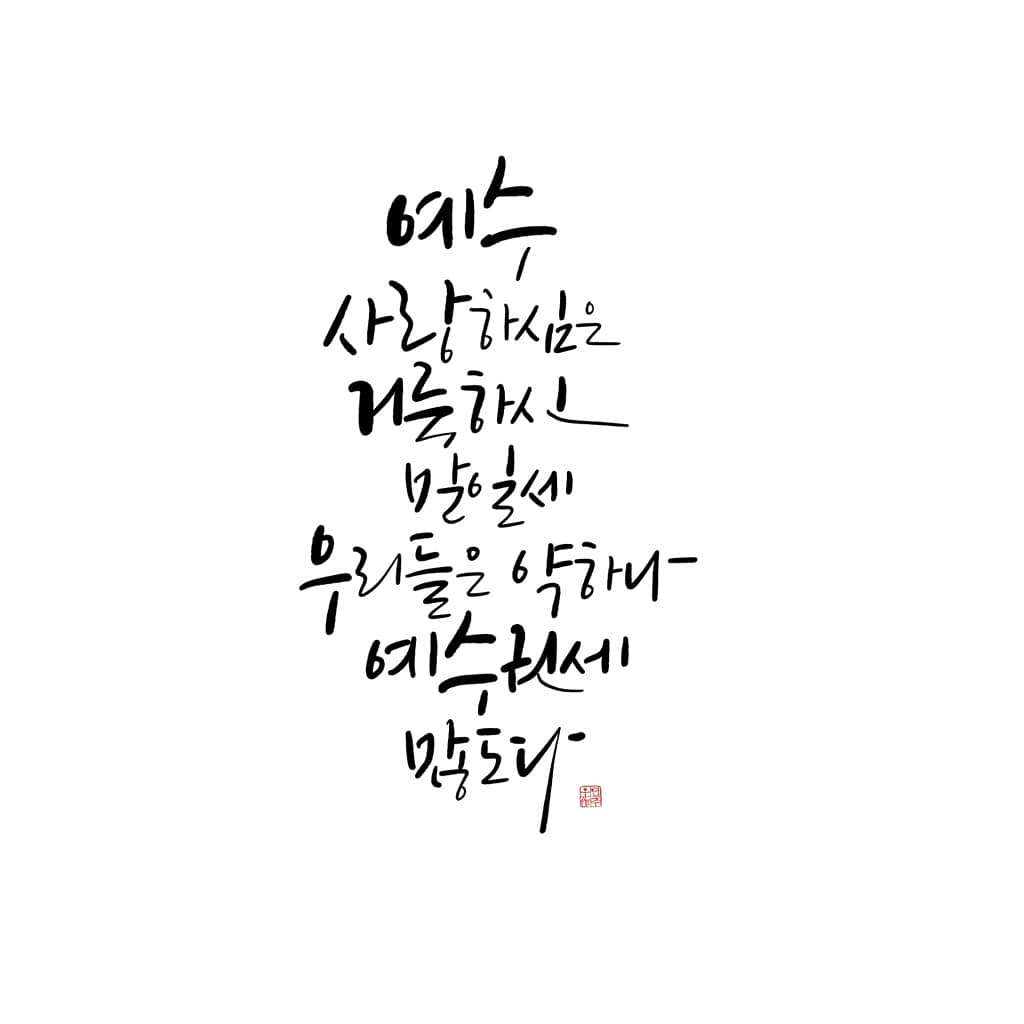 예수
사랑하심은
거룩하신
말일세
우리들은 약하나
예수권세
많도다